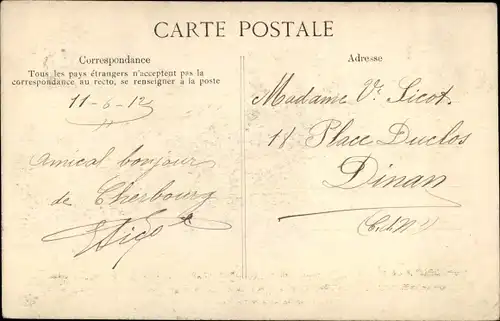 CARTE POSTALE
Correspondance
Tous les pays étrangers n'acceptent pas la
correspondance au recto, se renseigner à la poste
11-6-12
Amical bonjour
de Cherbourg
Adresse
Madame Vᵉ Sicot
14 Place Duclos
Dinan
(C. du N.)